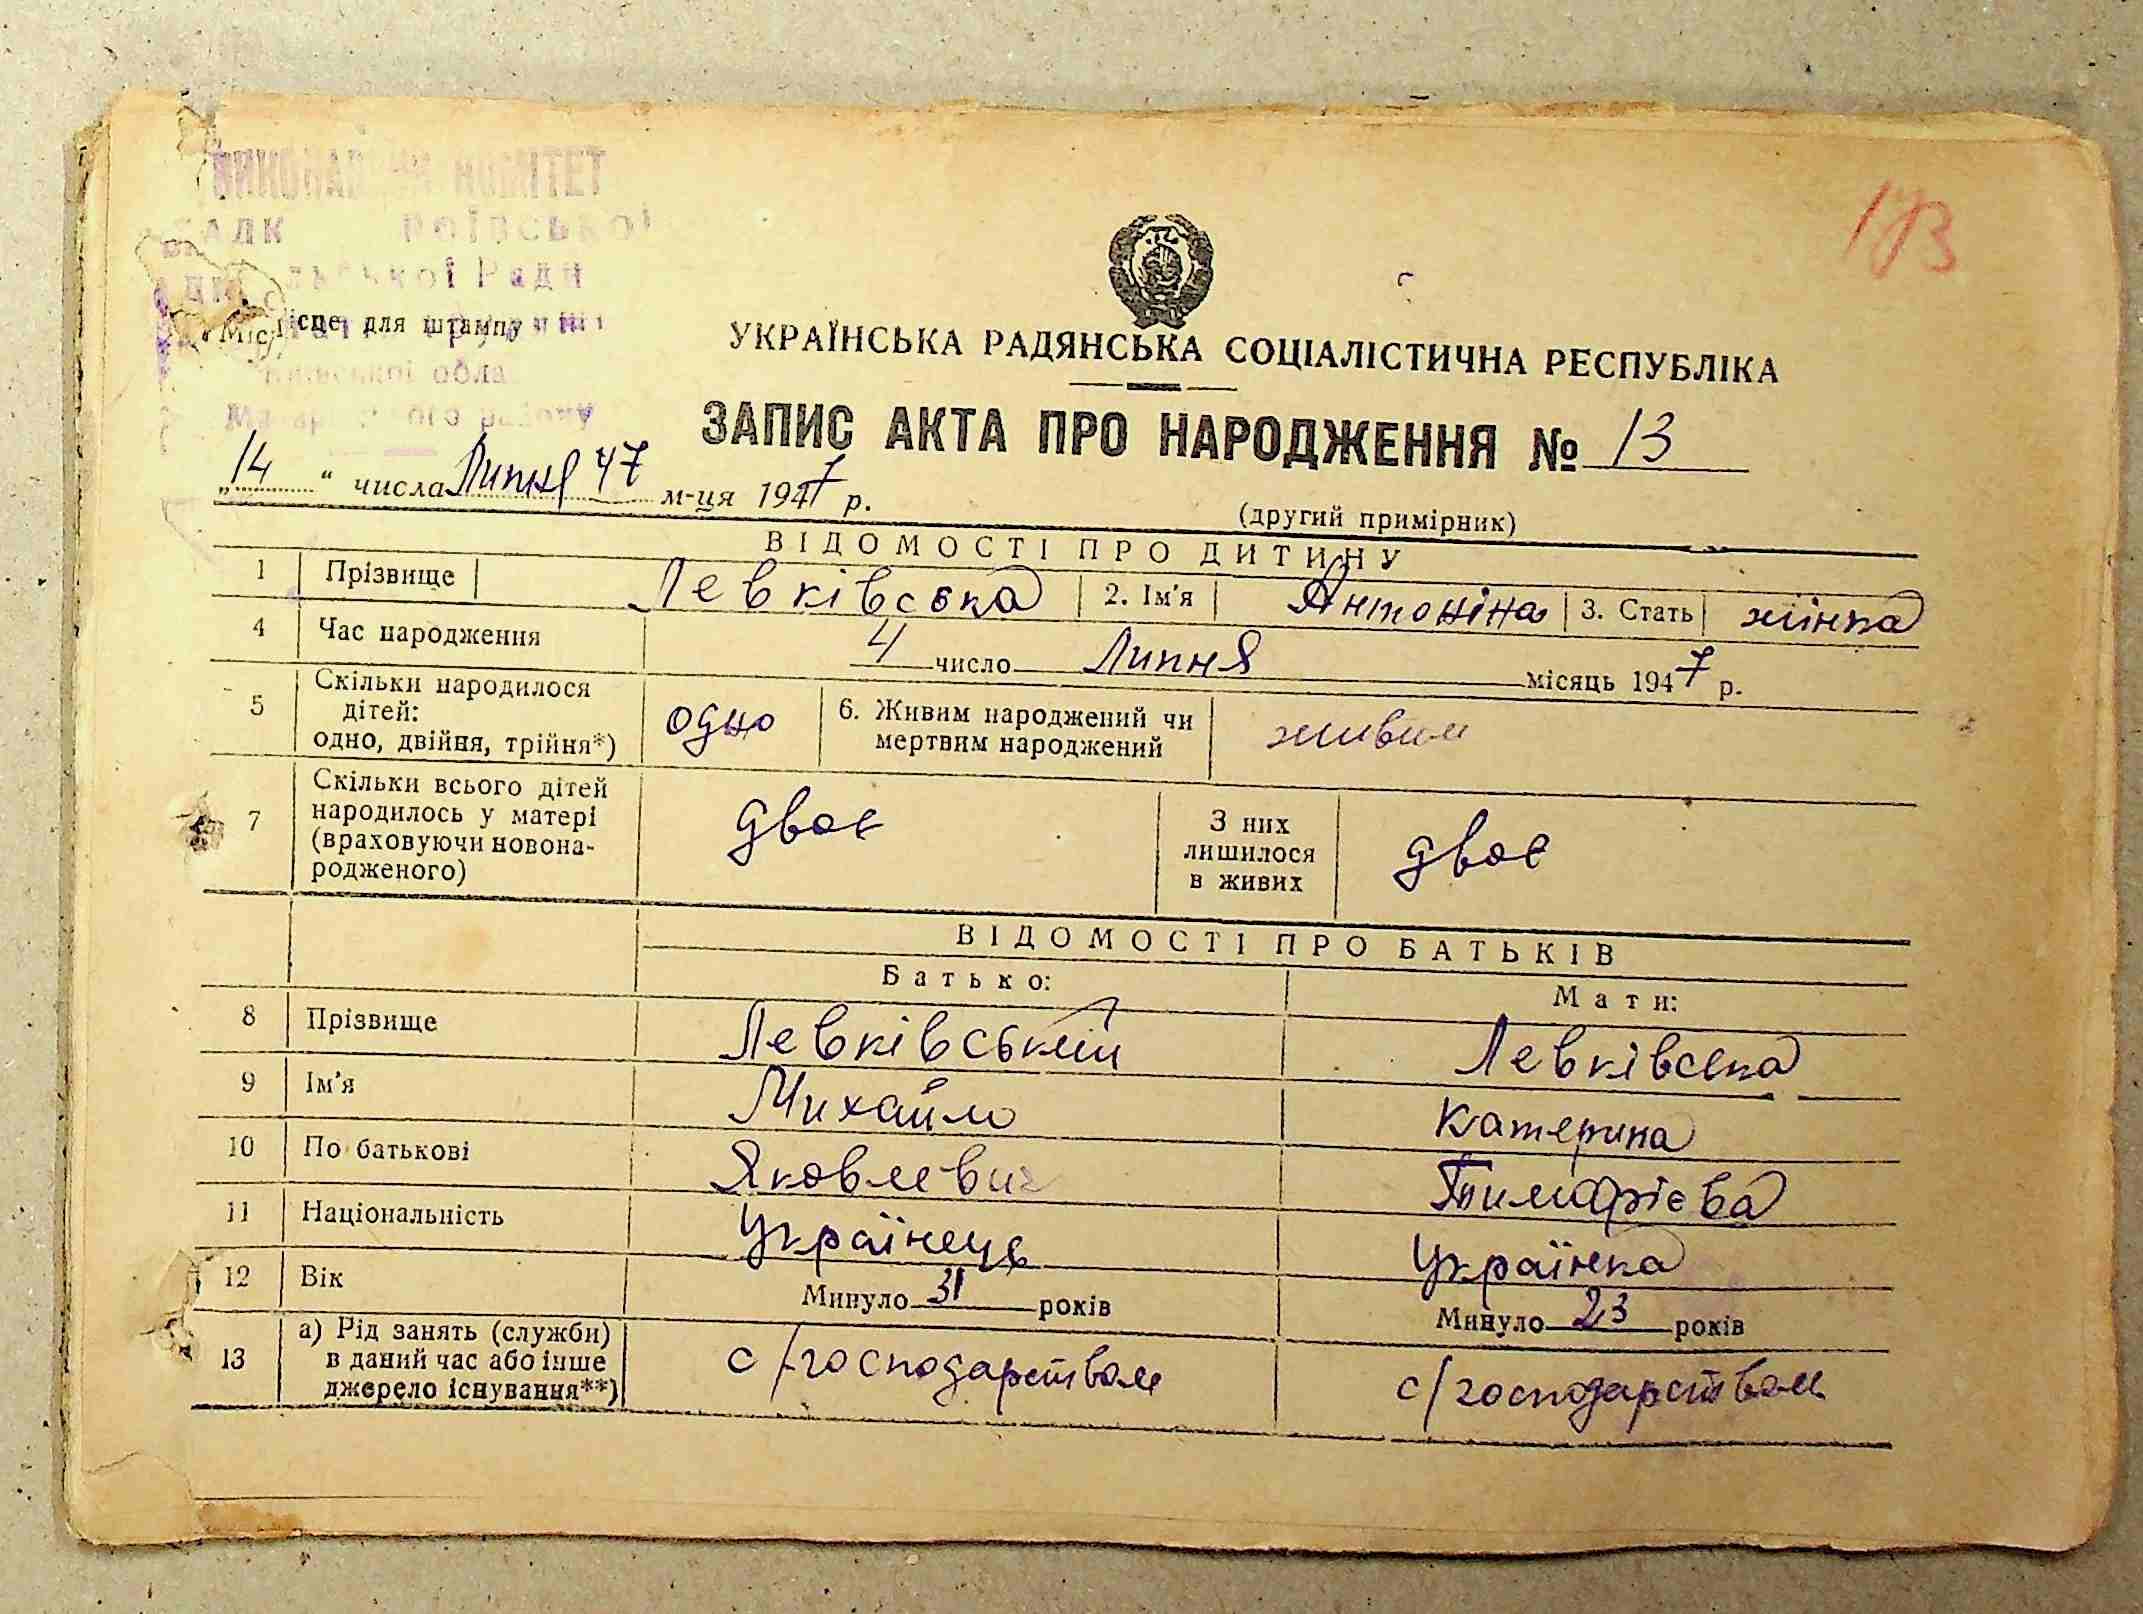 КОМІТЕТ
Ради
Місце для штампу
УКРАЇНСЬКА РАДЯНСЬКА СОЦІАЛІСТИЧНА РЕСПУБЛІКА
ЗАПИС АКТА ПРО НАРОДЖЕННЯ № 13
„14“ числа Липня 47 м-ця 1947 р.
(другий примірник)
ВІДОМОСТІ ПРО ДИТИНУ
1 Прізвище Левківська 2. Ім'я Антоніна 3. Стать жінка
4 Час народження 4 число Липня місяць 1947 р.
5 Скільки народилося дітей: одно, двійня, трійня*) одно 6. Живим народжений чи мертвим народжений живим
7 Скільки всього дітей народилось у матері (враховуючи новонародженого) двоє З них лишилося в живих двоє
ВІДОМОСТІ ПРО БАТЬКІВ
Батько: Мати:
8 Прізвище Левківський Левківська
9 Ім'я Михайло Катерина
10 По батькові Яковлевич Тимофієва
11 Національність Українець Українка
12 Вік Минуло 31 років Минуло 23 років
13 а) Рід занять (служби) в даний час або інше джерело існування**) с/господарством с/господарством